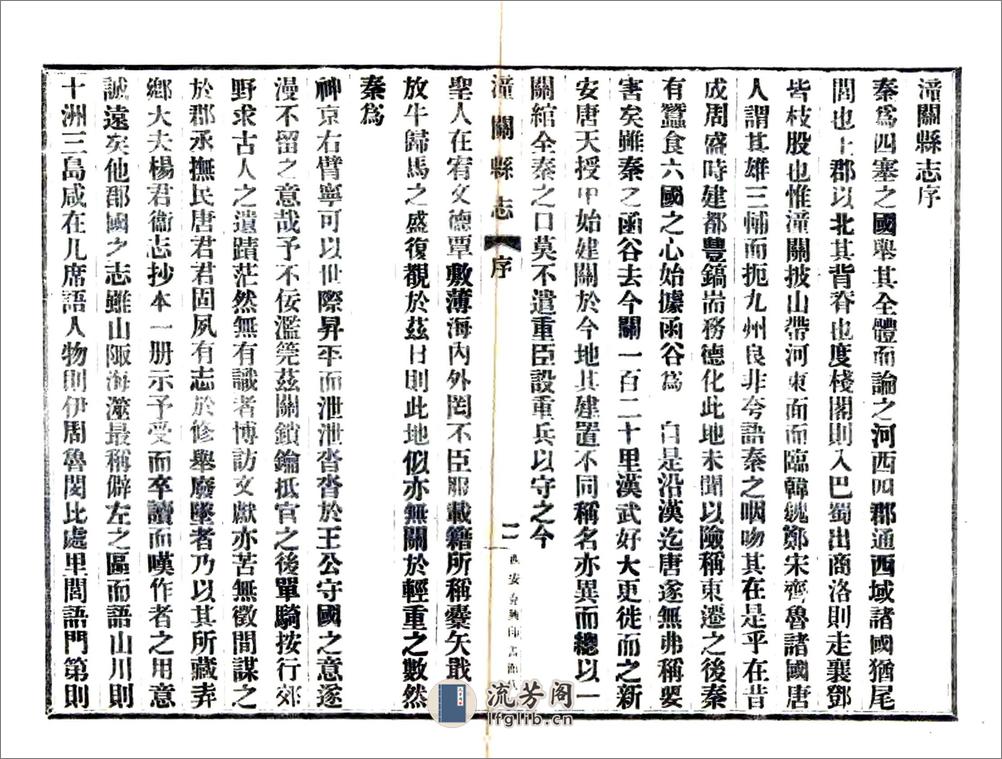 潼關縣志序
秦爲四塞之國舉其全體而論之河西四郡通西域諸國猶尾
閭也上郡以北其背脊也度棧閣則入巴蜀出商洛則走襄鄧
皆枝股也惟潼關披山帶河東面而臨韓魏鄭宋齊魯諸國唐
人謂其雄三輔而扼九州良非夸語秦之咽吻其在是乎在昔
成周盛時建都豐鎬耑務德化此地未聞以險稱東遷之後秦
有蠶食六國之心始據函谷爲 自是沿漢迄唐遂無弗稱要
害矣雖秦之函谷去今關一百二十里漢武好大更徙而之新
安唐天授中始建關於今地其建置不同稱名亦異而總以一
關綰全秦之口莫不遣重臣設重兵以守之今
潼關縣志 序 一 西安 印書館代
聖人在宥文德覃敷薄海內外罔不臣服載籍所稱櫜矢戢
放牛歸馬之盛復覩於茲日則此地似亦無關於輕重之數然
秦爲
神京右臂寧可以世際昇平而泄泄沓沓於王公守國之意遂
漫不留之意哉予不佞濫筦茲關鎖鑰抵官之後單騎按行郊
野求古人之遺蹟茫然無有識者博訪文獻亦苦無徵間謀之
於郡丞撫民唐君君固夙有志於修舉廢墜者乃以其所藏弆
鄉大夫楊君衞志抄本一册示予受而卒讀而嘆作者之用意
誠遠矣他郡國之志雖山陬海澨最稱僻左之區而語山川則
十洲三島咸在几席語人物則伊周魯閔比處里閭語門第則
流芳阁
lfglib.cn